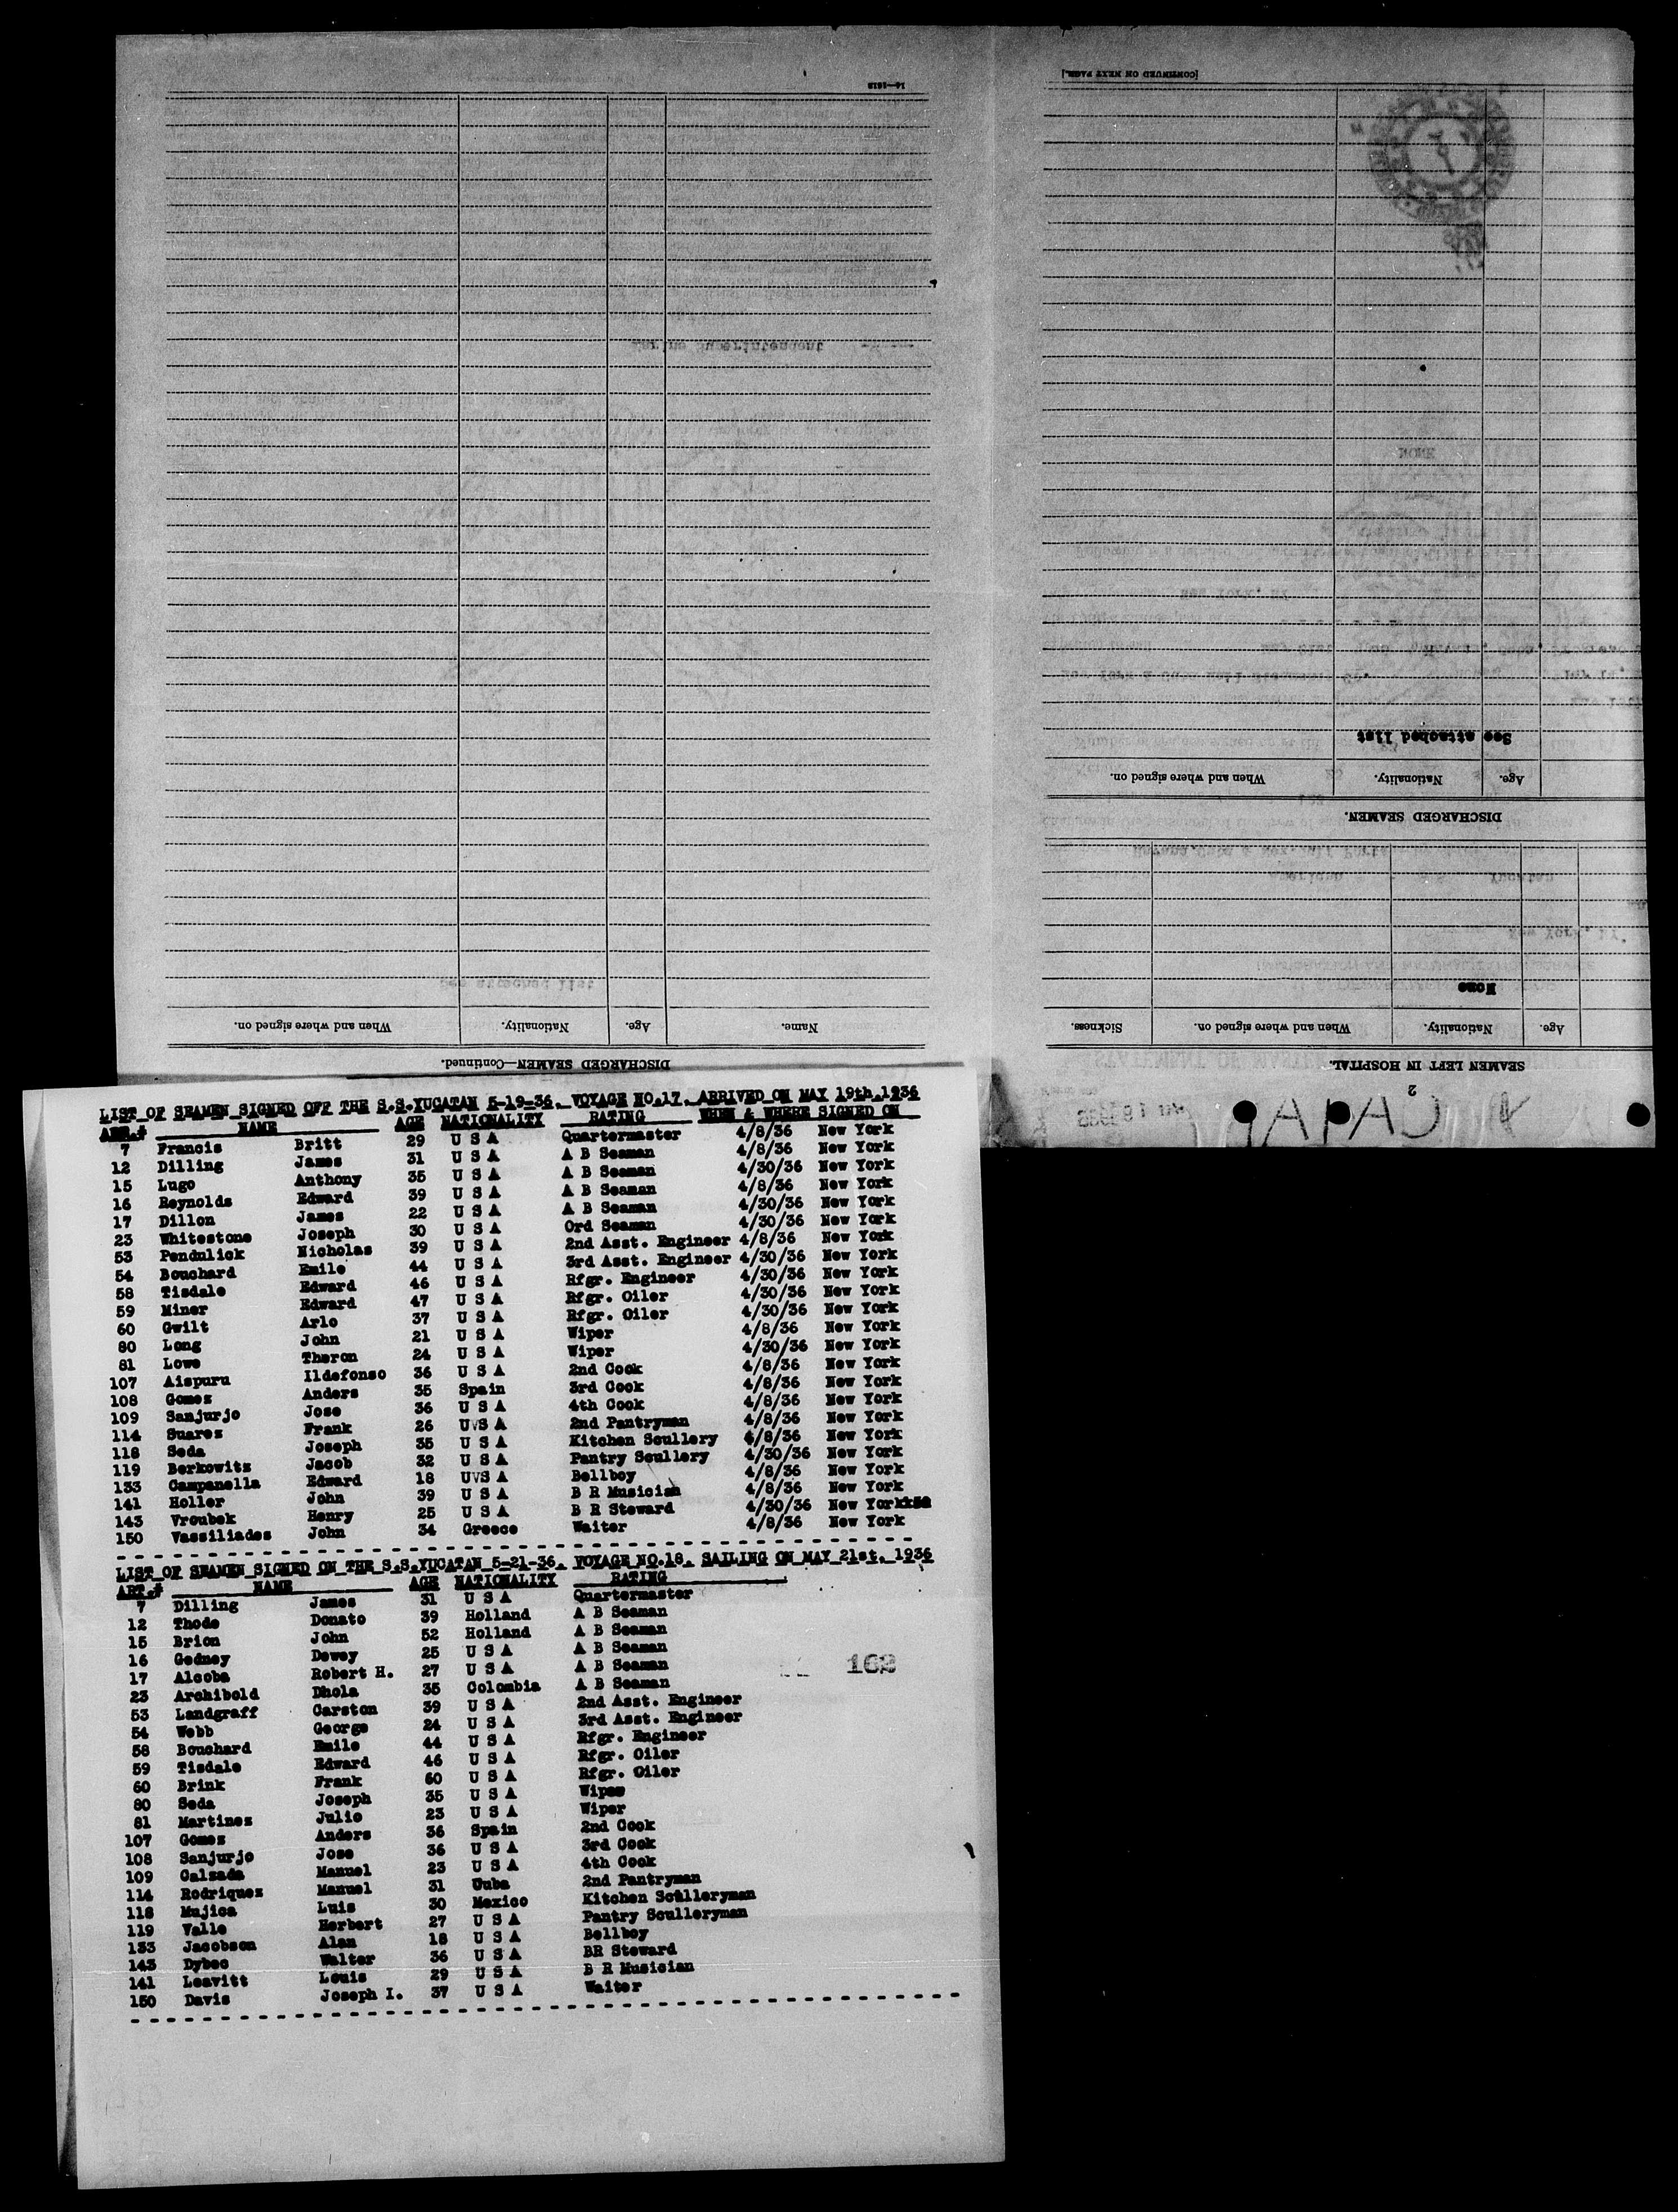 [CONTINUED ON NEXT PAGE.]
14—1618
NONE
See attached list
Age.
Nationality.
When and where signed on.
DISCHARGED SEAMEN.
None
Age.
Nationality.
When and where signed on.
Sickness.
SEAMEN LEFT IN HOSPITAL.
2
See attached list
Name.
Age.
Nationality.
When and where signed on.
DISCHARGED SEAMEN—Continued.
LIST OF SEAMEN SIGNED OFF THE S.S.YUCATAN 5-19-36. VOYAGE NO.17. ARRIVED ON MAY 19th.1936
ART.# NAME AGE NATIONALITY RATING WHEN & WHERE SIGNED ON
7 Francis Britt 29 U S A Quartermaster 4/8/36 New York
12 Dilling James 31 U S A A B Seaman 4/8/36 New York
15 Lugo Anthony 35 U S A A B Seaman 4/30/36 New York
16 Reynolds Edward 39 U S A A B Seaman 4/8/36 New York
17 Dillon James 22 U S A A B Seaman 4/30/36 New York
23 Whitestone Joseph 30 U S A Ord Seaman 4/30/36 New York
53 Pendulick Nicholas 39 U S A 2nd Asst. Engineer 4/8/36 New York
54 Bouchard Emile 44 U S A 3rd Asst. Engineer 4/30/36 New York
58 Tisdale Edward 46 U S A Rfgr. Engineer 4/30/36 New York
59 Miner Edward 47 U S A Rfgr. Oiler 4/30/36 New York
60 Gwilt Arlo 37 U S A Rfgr. Oiler 4/30/36 New York
80 Long John 21 U S A Wiper 4/8/36 New York
81 Lowe Theron 24 U S A Wiper 4/30/36 New York
107 Aispuru Ildefonso 36 U S A 2nd Cook 4/8/36 New York
108 Gomez Anders 35 Spain 3rd Cook 4/8/36 New York
109 Sanjurjo Jose 36 U S A 4th Cook 4/8/36 New York
114 Suarez Frank 26 UVS A 2nd Pantryman 4/8/36 New York
118 Seda Joseph 35 U S A Kitchen Scullery 4/8/36 New York
119 Berkowitz Jacob 32 U S A Pantry Scullery 4/30/36 New York
133 Campanella Edward 18 UVS A Bellboy 4/8/36 New York
141 Holler John 39 U S A B R Musician 4/8/36 New York
143 Vroubek Henry 25 U S A B R Steward 4/30/36 New York
150 Vassiliades John 34 Greece Waiter 4/8/36 New York
LIST OF SEAMEN SIGNED ON THE S.S.YUCATAN 5-21-36. VOYAGE NO.18. SAILING ON MAY 21st. 1936
ART.# NAME AGE NATIONALITY RATING
7 Dilling James 31 U S A Quartermaster
12 Thode Donato 39 Holland A B Seaman
15 Brion John 52 Holland A B Seaman
16 Gedney Dewey 25 U S A A B Seaman
17 Alcoba Robert H. 27 U S A A B Seaman
162
23 Archibold Dhola 35 Colombia A B Seaman
53 Landgraff Carston 39 U S A 2nd Asst. Engineer
54 Webb George 24 U S A 3rd Asst. Engineer
58 Bouchard Emile 44 U S A Rfgr. Engineer
59 Tisdale Edward 46 U S A Rfgr. Oiler
60 Brink Frank 60 U S A Rfgr. Oiler
80 Seda Joseph 35 U S A Wiper
81 Martinez Julio 23 U S A Wiper
107 Gomez Anders 36 Spain 2nd Cook
108 Sanjurjo Jose 36 U S A 3rd Cook
109 Calzada Manuel 23 U S A 4th Cook
114 Rodriquez Manuel 31 Cuba 2nd Pantryman
118 Mujica Luis 30 Mexico Kitchen Sculleryman
119 Valle Herbert 27 U S A Pantry Sculleryman
133 Jacobson Alan 18 U S A Bellboy
143 Dybec Walter 36 U S A BR Steward
141 Leavitt Louis 29 U S A B R Musician
150 Davis Joseph I. 37 U S A Waiter